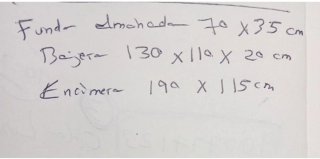 Funda almohada 70 x 35 cm
Bajera 130 x 110 x 20 cm
Encimera 190 x 115 cm